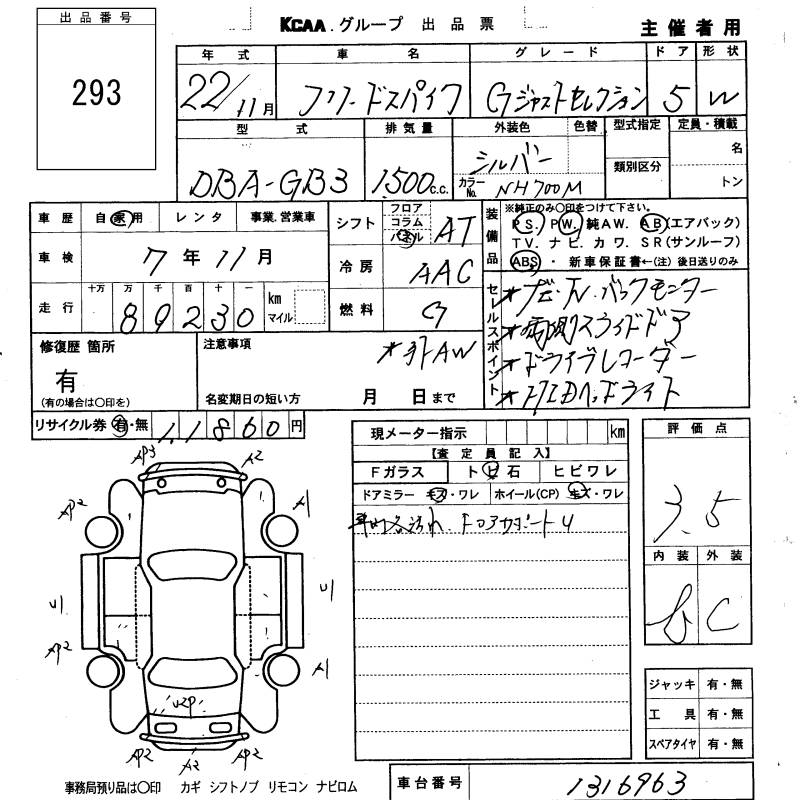 出品番号
293
KCAA.グループ 出品票
主催者用
年式 車名 グレード ドア 形状
22/11月 フリードスパイク Gジャストセレクション 5 W
型式 排気量 外装色 色替 型式指定 定員・積載
DBA-GB3 1,500c.c. シルバー 類別区分 名
カラーNo. NH700M トン
車歴 自家用 レンタ 事業.営業車
シフト フロア コラム パネル AT
装備品 ※純正のみ〇印をつけて下さい。
PS. PW. 純AW. AB(エアバック)
TV. ナビ. カワ. SR(サンルーフ)
ABS. 新車保証書←(注)後日送りのみ
車検 7年11月
冷房 AAC
走行 十万 万 千 百 十 一 km マイル
89230
燃料 G
セレルスポイント
★ナビ.TV.バックモニター
★両側スライドドア
★ドライブレコーダー
★HIDヘッドライト
修復歴 箇所
有
(有の場合は〇印を)
注意事項
★社外AW
名変期日の短い方 月 日まで
リサイクル券 有・無 11860円
現メーター指示 km
【査定員記入】
Fガラス トビ石 ヒビワレ
ドアミラー キズ・ワレ ホイール(CP) キズ・ワレ
車内各汚れ ドアサポートU
評価点
3.5
内装 外装
B C
AP3 A2
AP2 A1
U1 U1
AP2 A1
U2P
AP2 A2 AP2
ジャッキ 有・無
工具 有・無
スペアタイヤ 有・無
事務局預り品は〇印 カギ シフトノブ リモコン ナビロム
車台番号 1316963